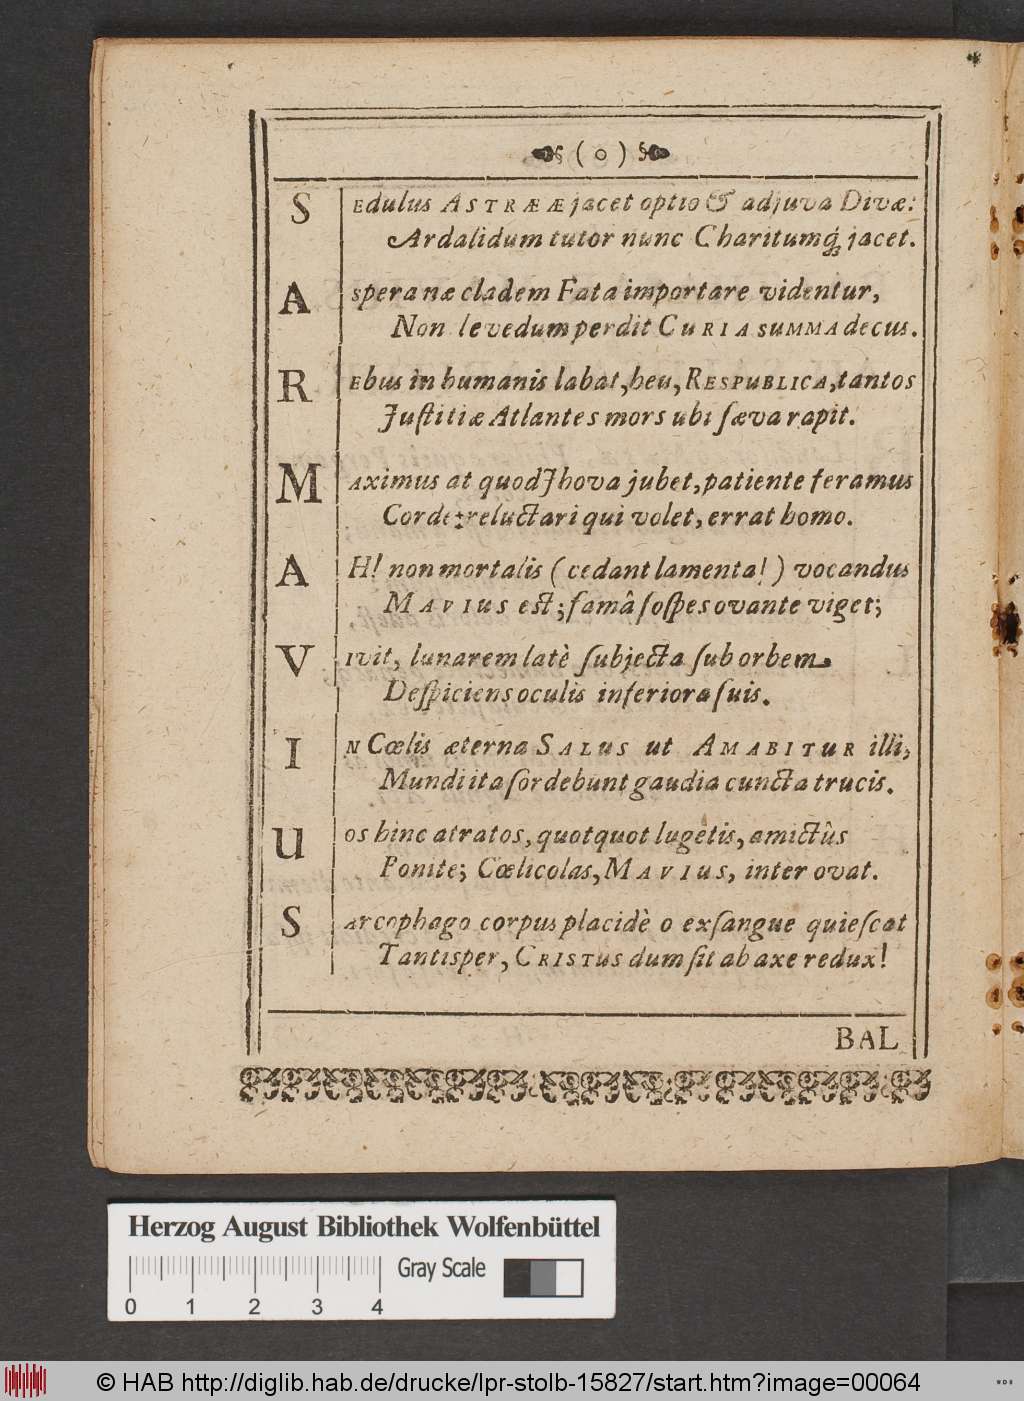 ( o )
SEdulus ASTRÆÆ jacet optio & adjuva Divæ:
Ardalidum tutor nunc Charitumq́; jacet.
Aspera næ cladem Fata importare videntur,
Non leve dum perdit CURIA SUMMA decus.
REbus in humanis labat, heu, RESPUBLICA, tantos
Justitiæ Atlantes mors ubi ſæva rapit.
MAximus at quod Jhova jubet, patiente feramus
Corde; reluctari qui volet, errat homo.
AH! non mortalis (cedant lamenta!) vocandus
MAVIUS est; famâ ſoſpes ovante viget;
VIvit, lunarem latè ſubjecta ſub orbem
Deſpiciens oculis inferiora ſuis.
IN Cœlis æterna SALUS ut AMABITUR illi,
Mundi ita ſordebunt gaudia cuncta trucis.
Uos hinc atratos, quotquot lugetis, amictûs
Ponite; Cœlicolas, MAVIUS, inter ovat.
SArcophago corpus placidè o exſangue quieſcat
Tantisper, CRISTUS dum ſit ab axe redux!
BAL
Herzog August Bibliothek Wolfenbüttel
Gray Scale
0 1 2 3 4
© HAB http://diglib.hab.de/drucke/lpr-stolb-15827/start.htm?image=00064